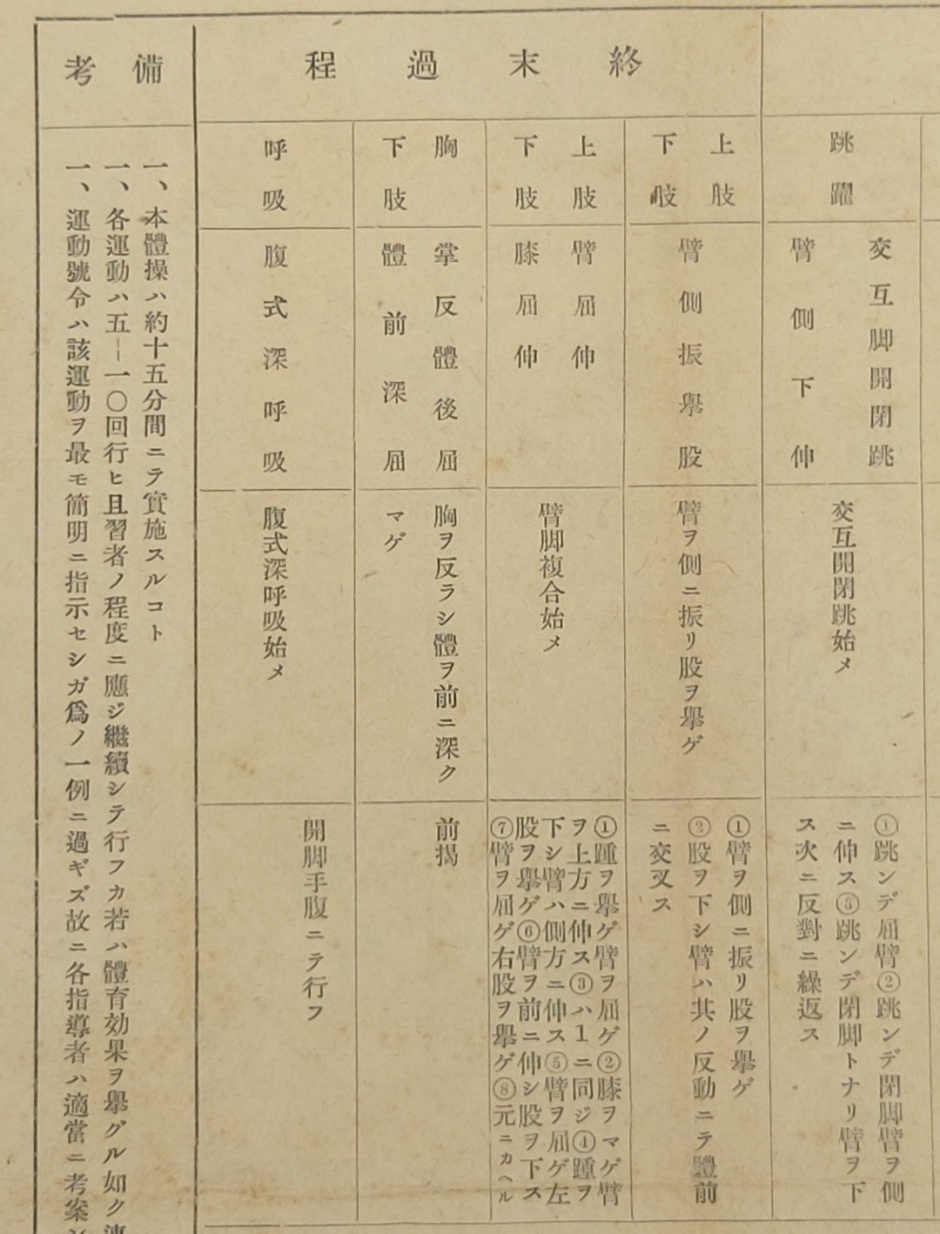 跳躍
交互脚開閉跳
臂側下伸
交互開閉跳始メ
①跳ンデ屈臂②跳ンデ閉脚臂ヲ側
ニ伸ス③跳ンデ閉脚トナリ臂ヲ下
ス次ニ反對ニ繰返ス
終末過程
上肢
下肢
臂側振擧股
臂ヲ側ニ振リ股ヲ擧ゲ
①臂ヲ側ニ振リ股ヲ擧ゲ
②股ヲ下シ臂ハ其ノ反動ニテ體前
ニ交叉ス
上肢
下肢
臂屈伸
膝屈伸
臂脚複合始メ
①踵ヲ擧ゲ臂ヲ屈ゲ②膝ヲマゲ臂
ヲ上方ニ伸ス③ハ1ニ同ジ④踵ヲ
下シ臂ハ側方ニ伸ス⑤臂ヲ屈ゲ左
股ヲ擧ゲ⑥臂ヲ前ニ伸シ股ヲ下ス
⑦臂ヲ屈ゲ右股ヲ擧ゲ⑧元ニカヘル
胸
下肢
掌反體後屈
體前深屈
胸ヲ反ラシ體ヲ前ニ深ク
マゲ
前揭
呼吸
腹式深呼吸
腹式深呼吸始メ
開脚手腹ニテ行フ
備考
一、本體操ハ約十五分間ニテ實施スルコト
一、各運動ハ五―一〇回行ヒ且習者ノ程度ニ應ジ繼續シテ行フカ若ハ體育効果ヲ擧グル如ク
一、運動號令ハ該運動ヲ最モ簡明ニ指示セシガ爲ノ一例ニ過ギズ故ニ各指導者ハ適當ニ考案